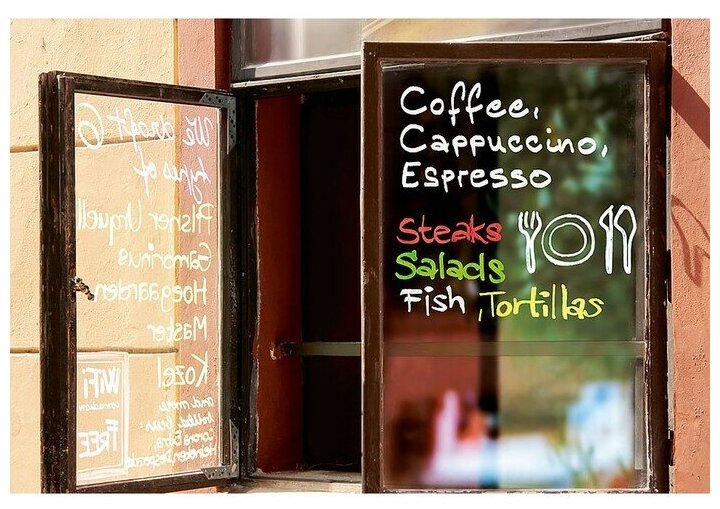 We draft 6
types of
Pilsner Urquell
Gambrinus
Hoegaarden
Master
Kozel
and more
Corona Extra,
WiFi
FREE
Coffee,
Cappuccino,
Espresso
Steaks
Salads
Fish, Tortillas